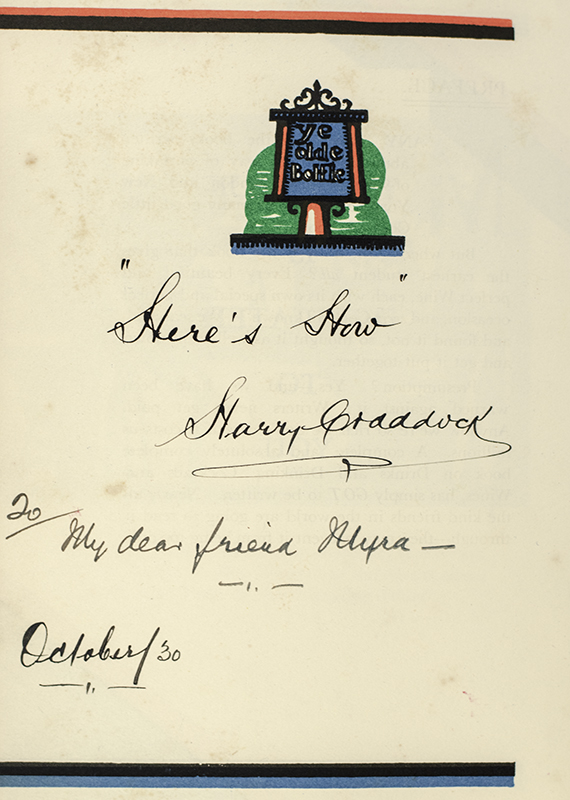 ye
olde
Bottle
"Here's How"
Harry Craddock
To
My dear friend Myra —
October/30